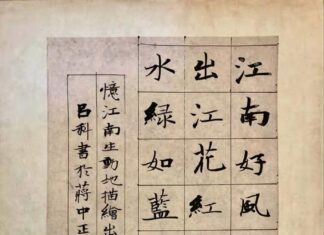 江南好風
出江花紅
水綠如藍
憶江南生動地描繪出
呂科書於蔣中正